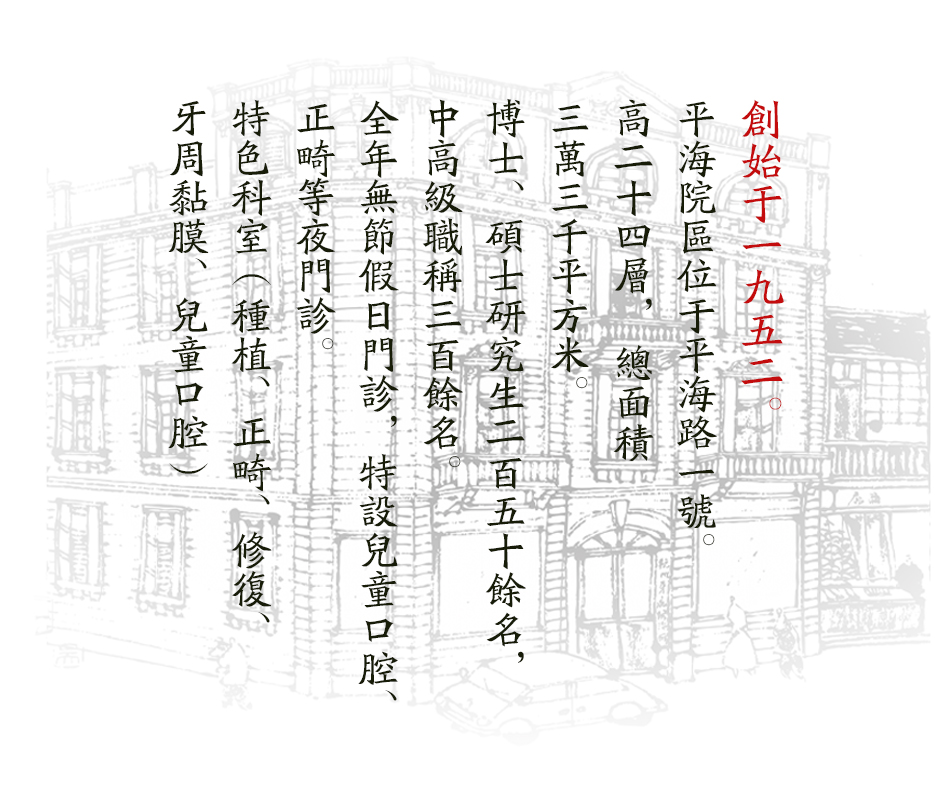 創始于一九五二。
平海院區位于平海路一號。
高二十四層，總面積
三萬三千平方米。
博士、碩士研究生二百五十餘名，
中高級職稱三百餘名。
全年無節假日門診，特設兒童口腔、
正畸等夜門診。
特色科室（種植、正畸、修復、
牙周黏膜、兒童口腔）